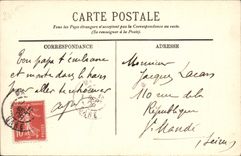 CARTE POSTALE
Tous les pays étrangers n'acceptent pas la Correspondance au recto
(Se renseigner à la Poste)
CORRESPONDANCE
ADRESSE
Ton papa t'embrasse
et monte dans le train
pour aller te chercher
Monsieur
Jacques Lacas
110 rue de la
République
St Mandé
(Seine)
10